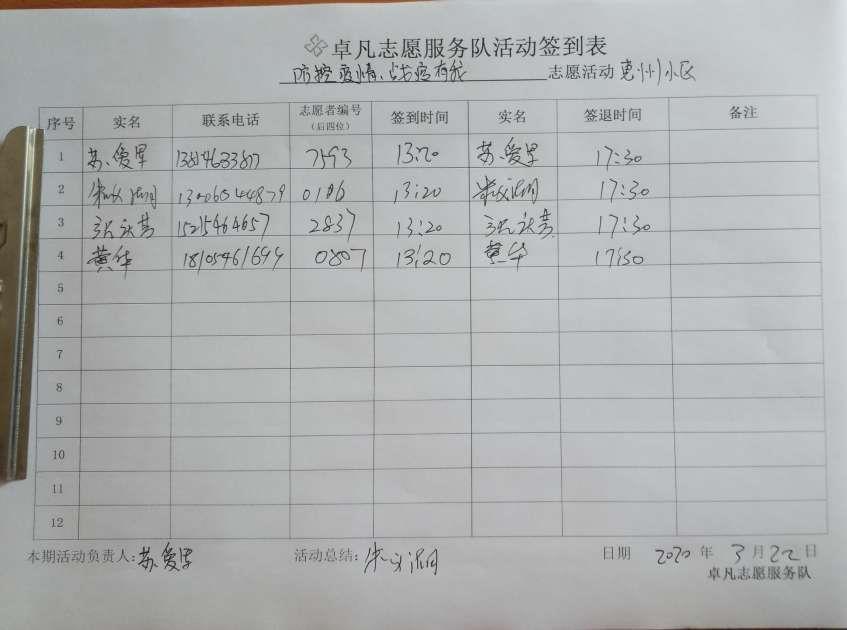 卓凡志愿服务队活动签到表
防控疫情、战疫有我 志愿活动 惠州小区
序号 实名 联系电话 志愿者编号 签到时间 实名 签退时间 备注
(后四位)
1 苏爱军 7593 13:20 苏爱军 17:30
2 13206544879 0106 13:20 17:30
3 15215464657 2837 13:20 17:30
4 黄华 18105461699 0807 13:20 黄华 17:30
5
6
7
8
9
10
11
12
本期活动负责人:苏爱军 活动总结: 日期 2020 年 3 月 22 日
卓凡志愿服务队